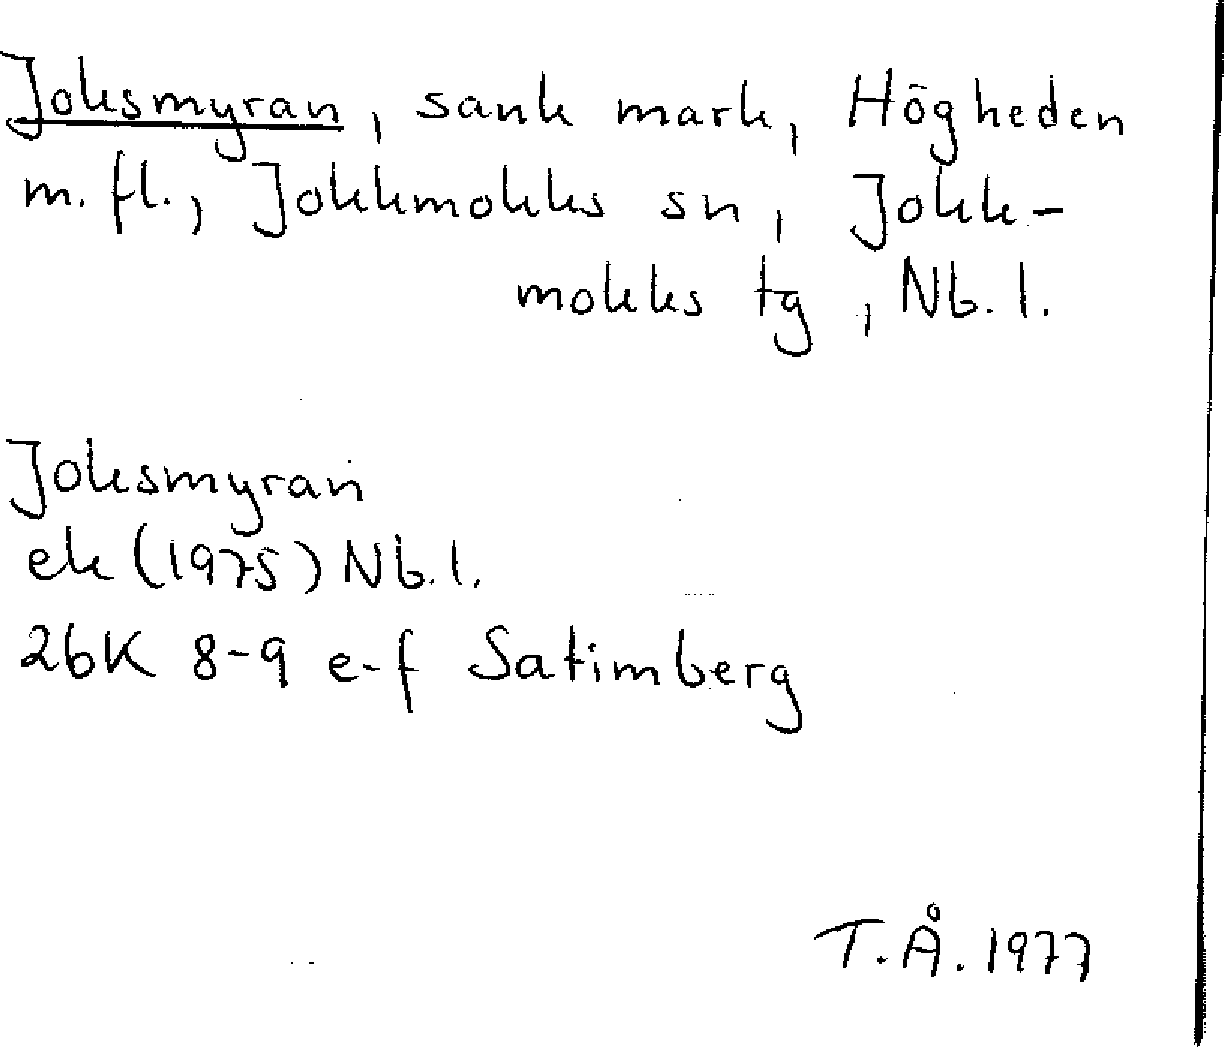 Joksmyran, sank mark, Högheden
m. fl., Jokkmokks sn, Jokk-
mokks tg, Nb. l.
Joksmyran
ek (1975) Nb. l.
26K 8-9 e-f Satimberg
T. Å. 1977